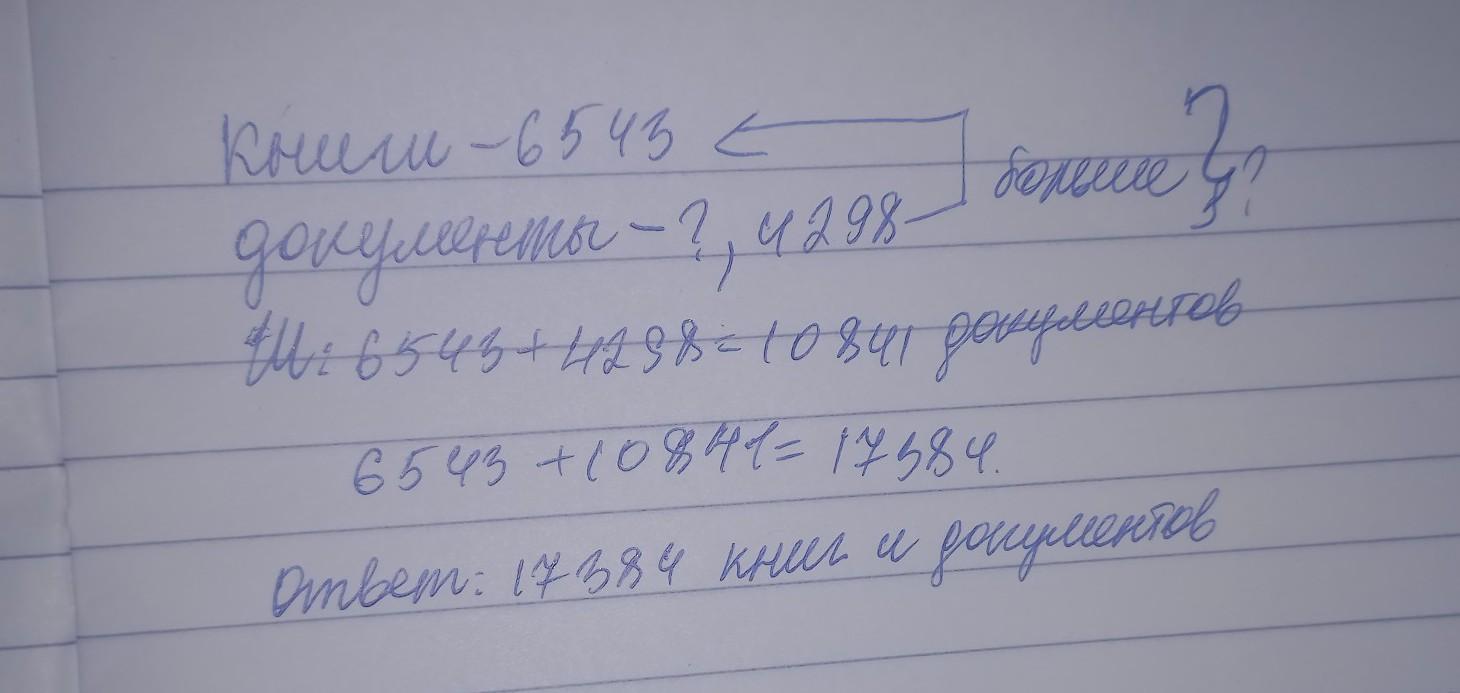 Книги - 6543
больше } ?
документы - ?, 4298
Ш: 6543 + 4298 = 10841 документов
6543 + 10841 = 17384.
Ответ: 17384 книг и документов